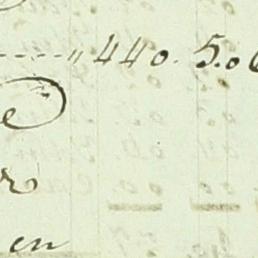 " 440. 5. 0
e
r
en